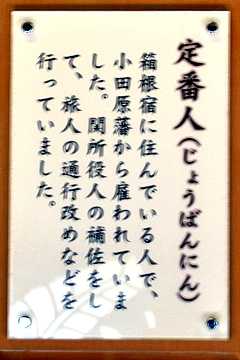 定番人(じょうばんにん)
箱根宿に住んでいる人で、
小田原藩から雇われていま
した。関所役人の補佐をし
て、旅人の通行改めなどを
行っていました。